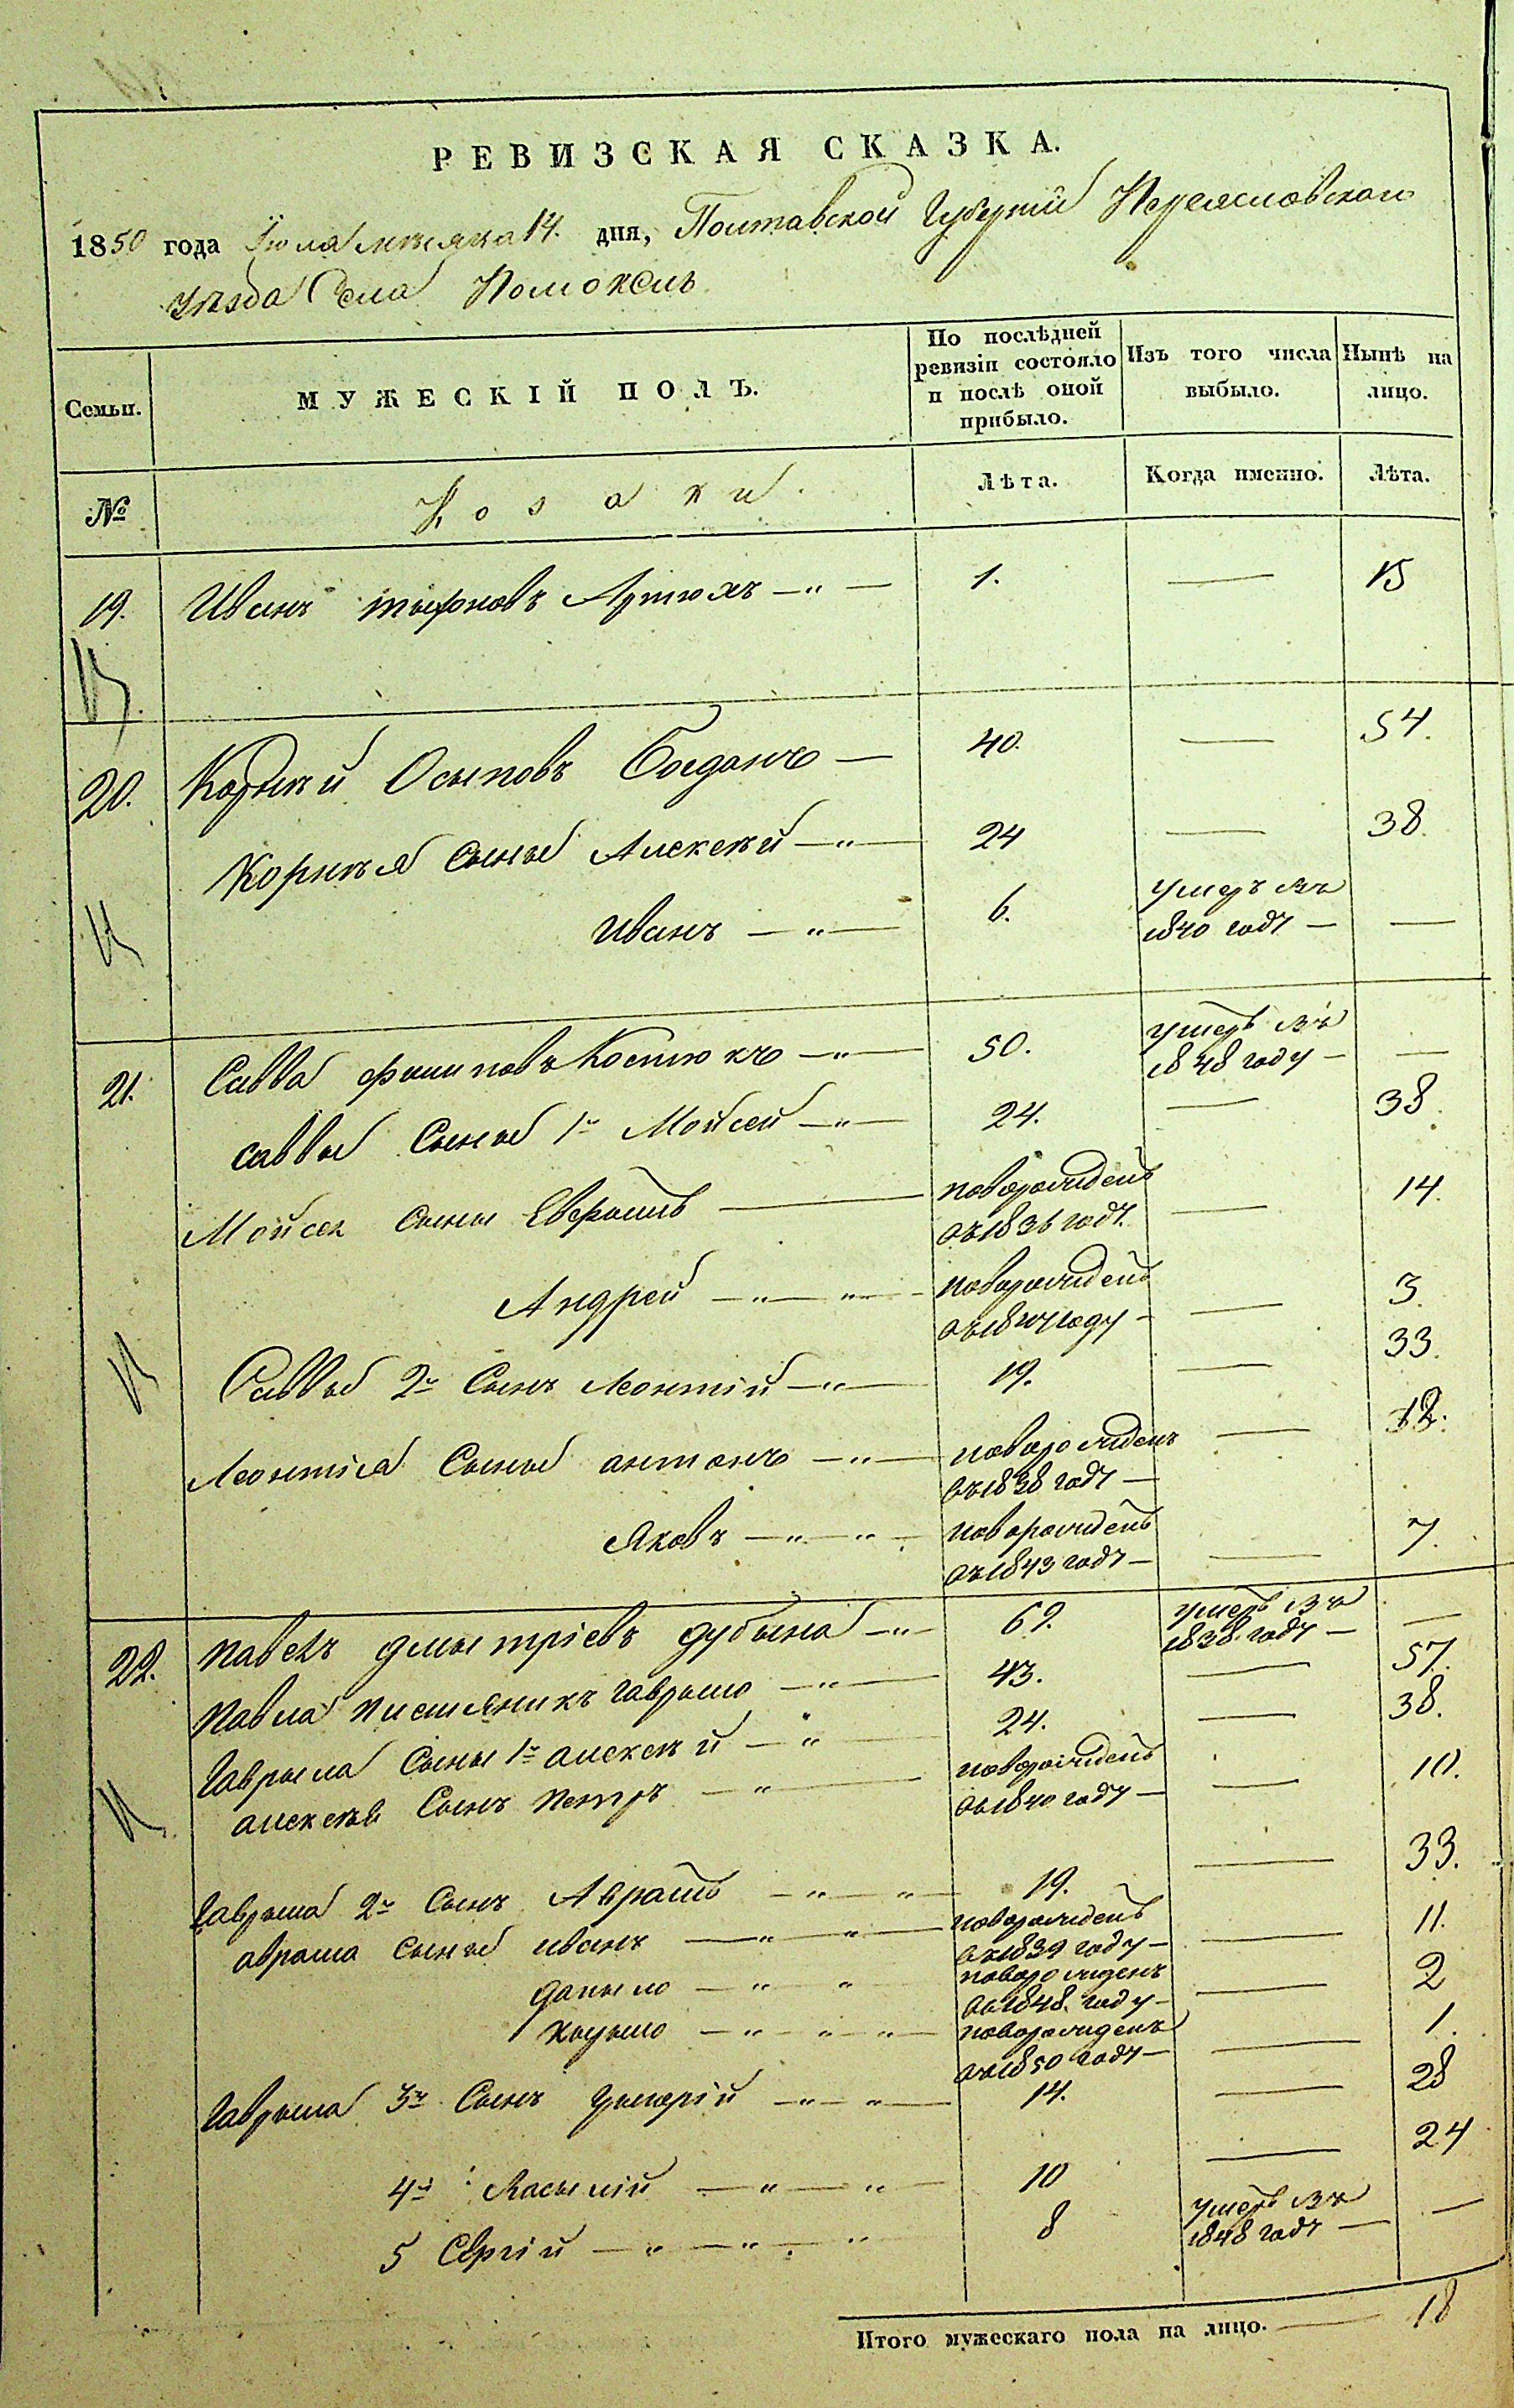 РЕВИЗСКАЯ СКАЗКА.
1850 года Іюля мѣсяца 14. дня, Полтавской Губерніи Переясловскаго
уѣзда Села Помоклъ
Семьи. МУЖЕСКІЙ ПОЛЪ. По послѣдней ревизіи состояло и послѣ оной прибыло. Изъ того числа выбыло. Нынѣ на лицо.
№ Козаки. Лѣта. Когда именно. Лѣта.
19. Иванъ Артюхъ —"— 1. — 15
20. Корнѣй Осыповъ Богданъ — 40. — 54.
Корнѣя Сыны Алексѣй —"— 24 — 38.
Иванъ —"— 6. умеръ въ 1840 году — —
21. Савва Филиповъ Костюкъ —"— 50. умеръ въ 1848 году — —
Саввы Сыны 1й Мойсей —"— 24. — 38.
Мойсея Сыны — новорожденъ въ 1836 году. — 14.
Андрей —"— "— новорожденъ въ 1847 году — — 3.
Саввы 2й Сынъ Леонтій —"— 19. — 33.
Леонтія Сыны антонъ —"— новорожденъ въ 1838 году — — 12.
Яковъ —"—"— новорожденъ въ 1843 году — — 7.
22. Павелъ дмытріевъ дубына —"— 62. умеръ въ 1838 году — —
Павла Гаврыло —"— 43. — 57.
Гаврыла Сыны 1й алексѣй —"— 24. — 38.
алексѣя Сынъ Петръ —"— новорожденъ въ 1840 году — — 10.
Гаврыла 2й Сынъ Аврамъ —"—"— 19. — 33.
аврама Сыны иванъ —"—"— новорожденъ въ 1839 году — — 11.
даныло —"— " новорожденъ въ 1848 году — — 2
кырыло —"—"—"— новорожденъ въ 1850 году — — 1.
Гаврыла 3й Сынъ Грыгорій —"—"— 14. — 28
4й Васылій —"—"— 10 — 24
5 Сергій —"—"—" 8 умеръ въ 1848 году — —
Итого мужескаго пола на лицо. — 18